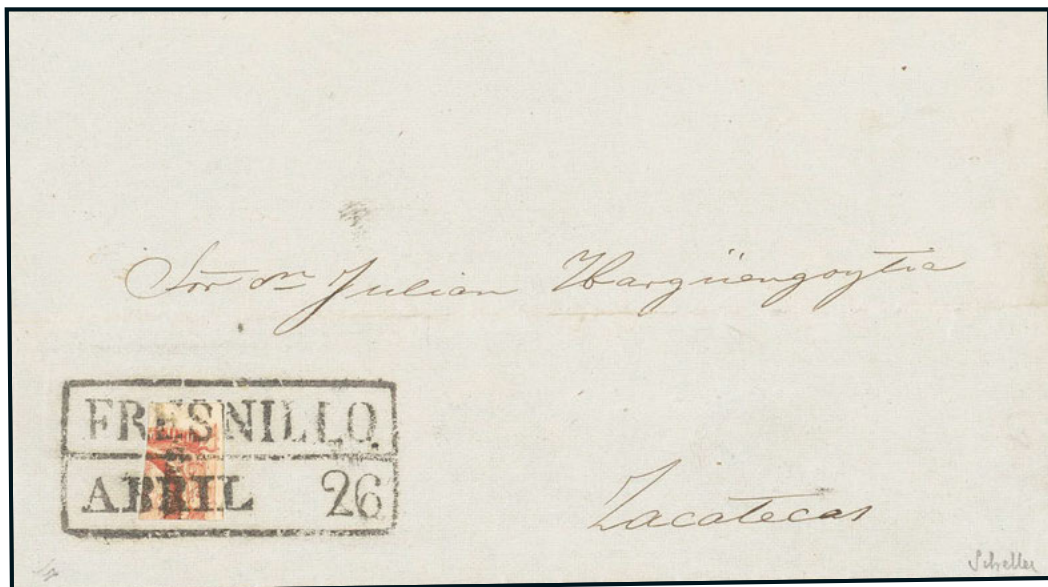 Sor dn Julian Ibargüengoytia
FRESNILLO
ABRIL 26
Zacatecas
Scheller